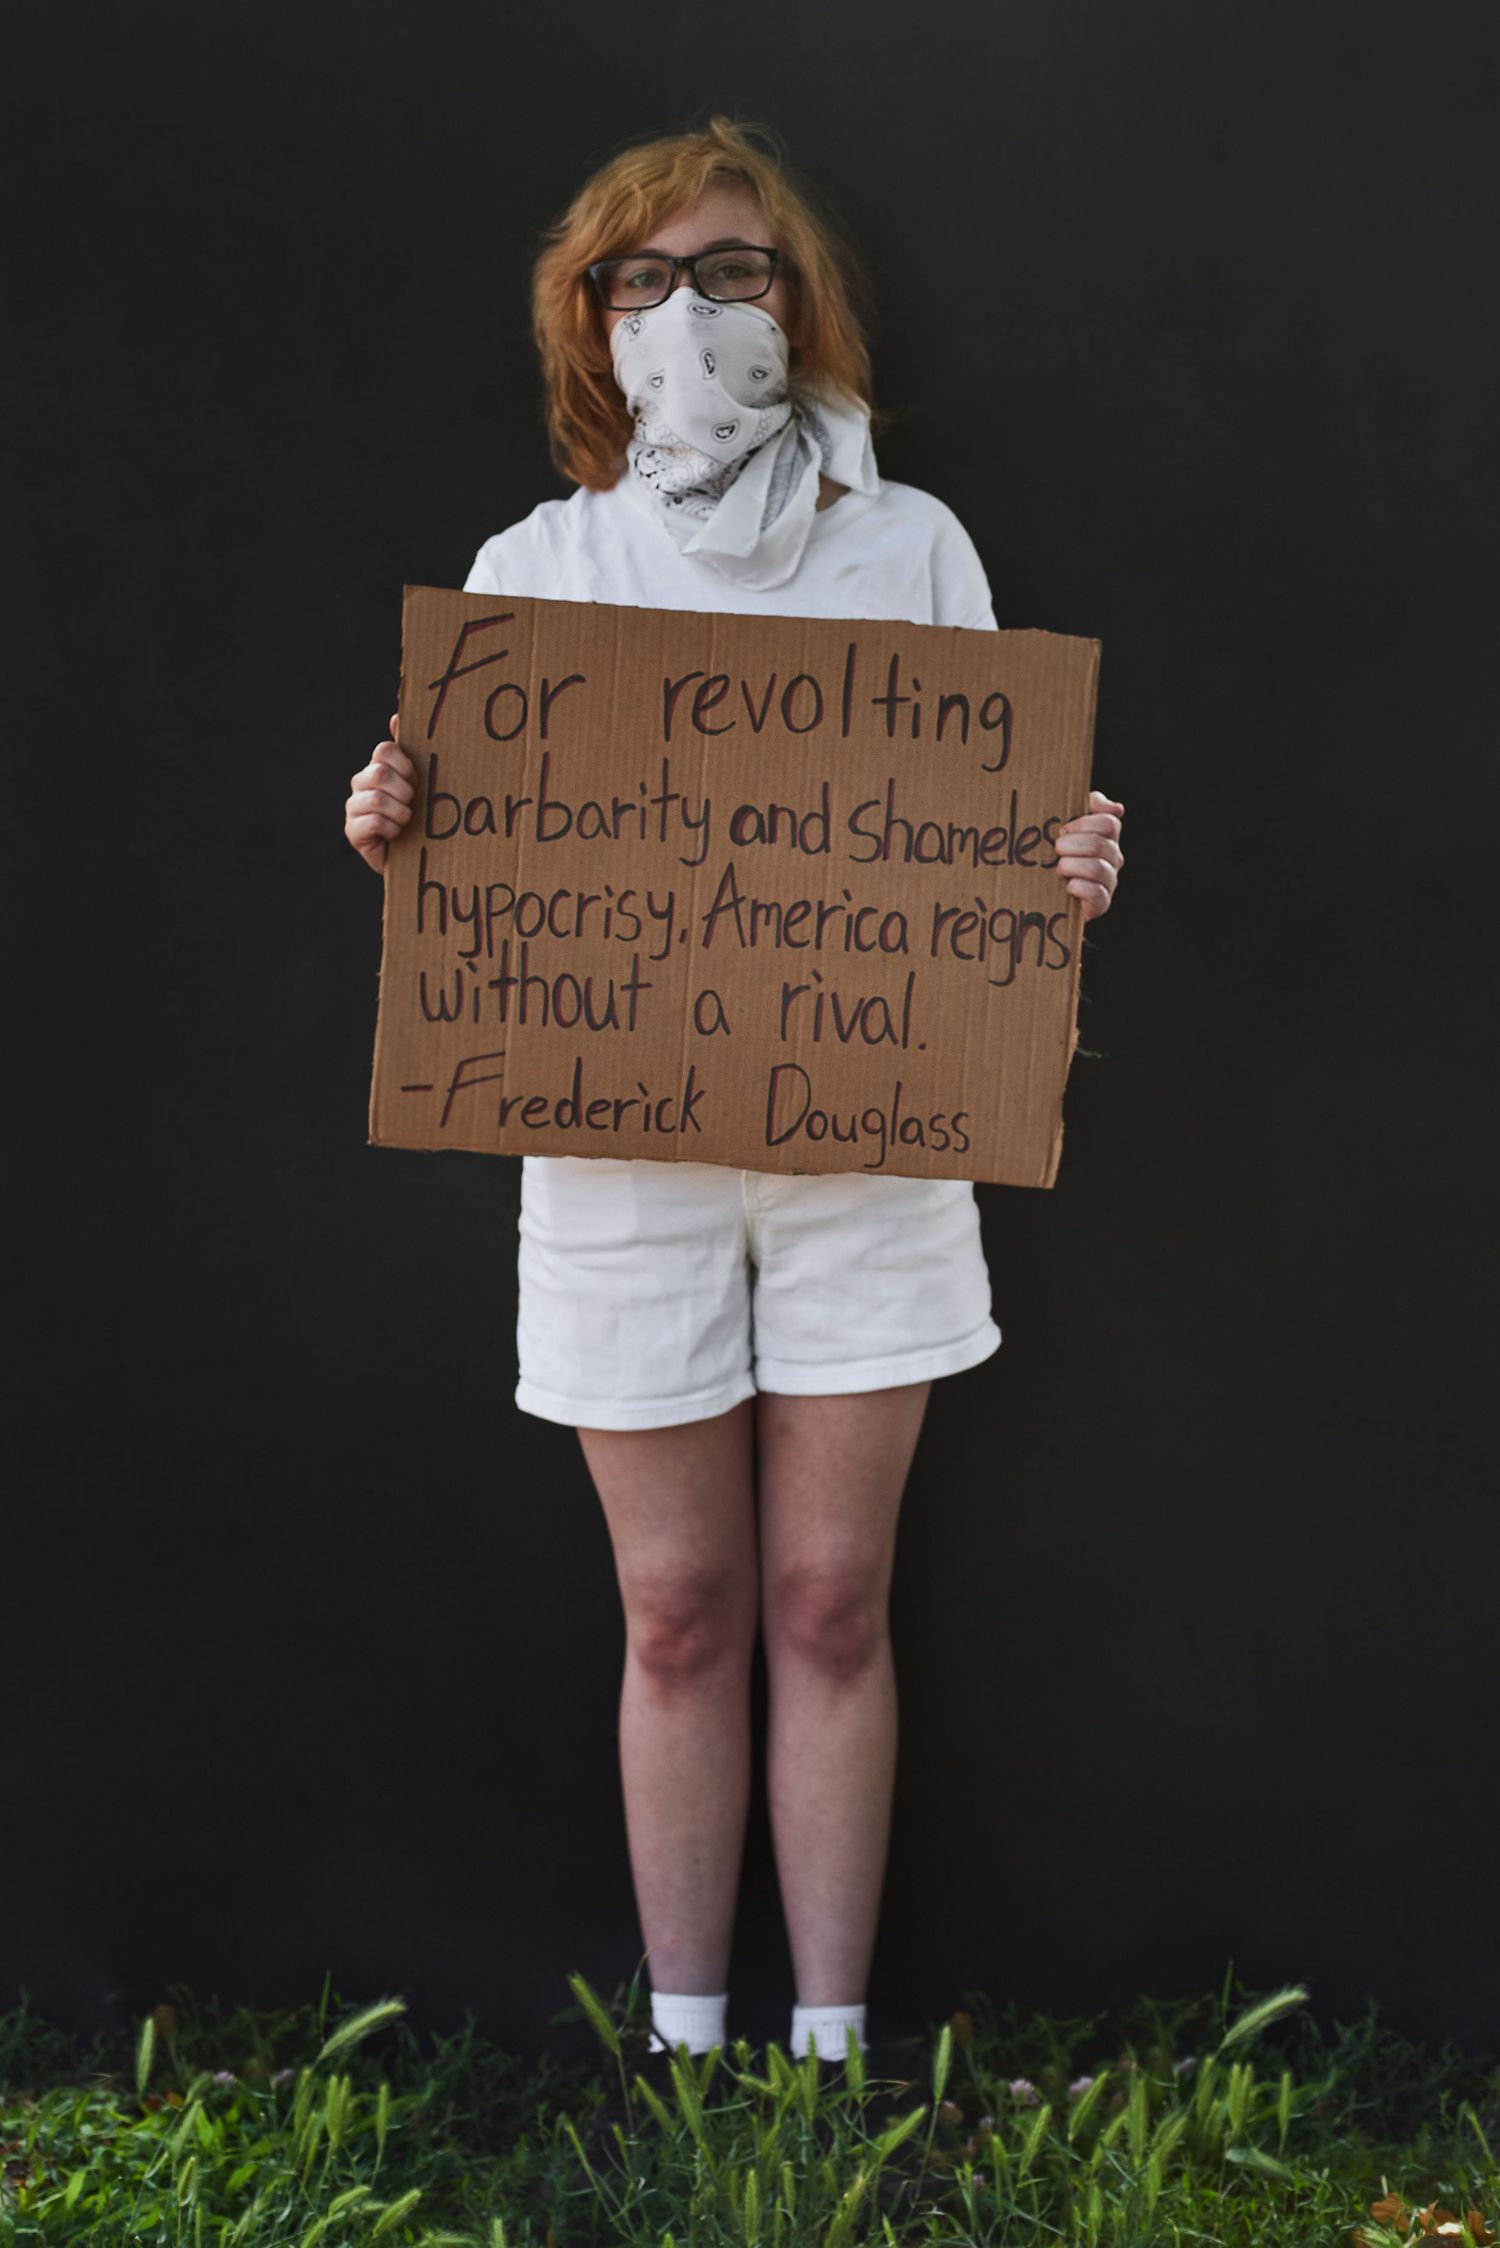 For revolting
barbarity and shameles
hypocrisy, America reigns
without a rival.
-Frederick Douglass